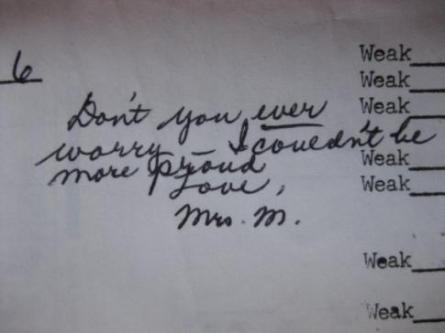 6
Weak
Weak
Don't you ever Weak
worry — I couldn't be
more proud Weak
Love, Weak
Mrs. M.
Weak
Weak